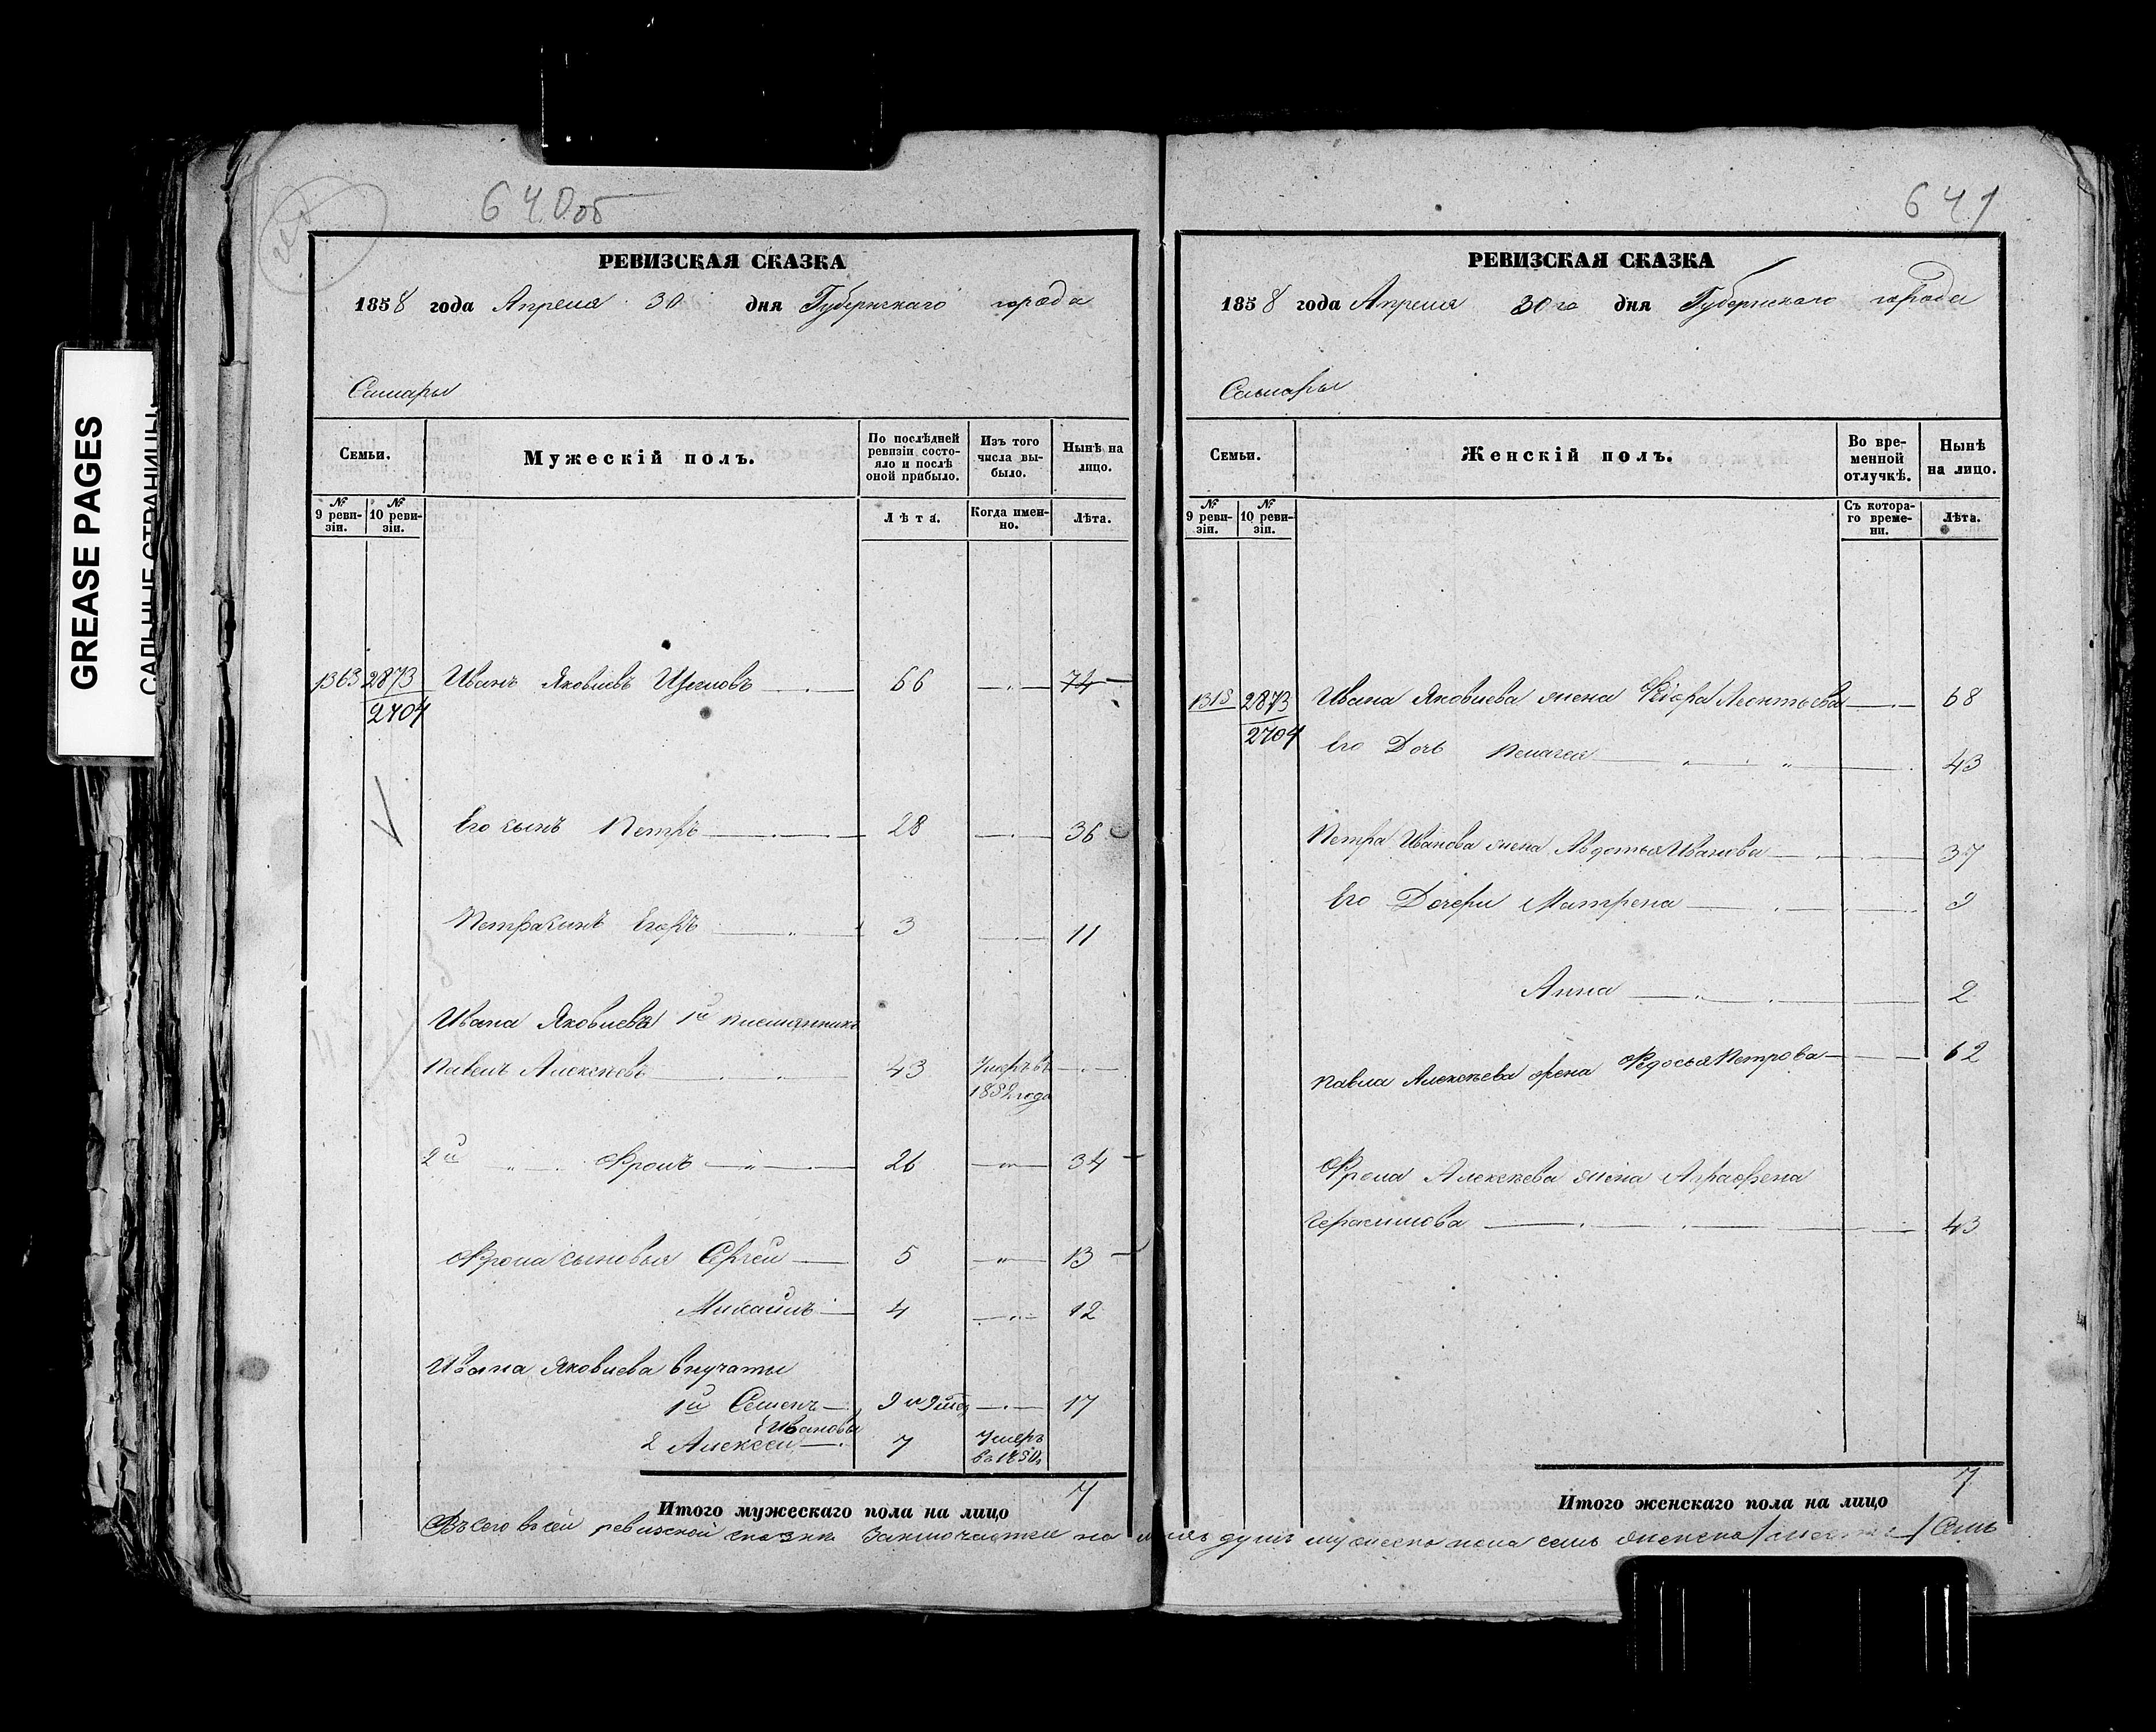 GREASE PAGES
САЛЬНЫЕ СТРАНИЦЫ
640об
РЕВИЗСКАЯ СКАЗКА
1858 года Апреля 30 дня Губернскаго города
Самары
Семьи.
Мужескій полъ.
По послѣдней ревизіи состояло и послѣ оной прибыло.
Изъ того числа выбыло.
Нынѣ на лицо.
№ 9 ревизіи.
№ 10 ревизіи.
Лѣта.
Когда именно.
Лѣта.
1363 2873 Иванъ Яковлевъ Щегловъ 66 74
2704
Его сынъ Петръ 28 36
Петра сынъ Егоръ 3 11
Ивана Яковлева 1й племянникъ
Павелъ Алексѣевъ 43 Умеръ въ
1852 года
2й " Фролъ 26 " 34
Фрола сыновья Сергей 5 " 13
Михаилъ 4 12
Ивана Яковлева внучаты
1й Семенъ 9 17
Ивановы
2 Алексей 7 Умеръ
в 1850
7
Итого мужескаго пола на лицо
641
РЕВИЗСКАЯ СКАЗКА
1858 года Апреля 30го дня Губернскаго города
Самары
Семьи.
Женскій полъ.
Во временной отлучкѣ.
Нынѣ на лицо.
№ 9 ревизіи.
№ 10 ревизіи.
Съ котораго времени.
Лѣта.
2873 Ивана Яковлева жена Леонтьева 68
2704
Его Дочь Пелагея 43
Петра Иванова жена Авдотья Иванова 37
Его Дочери Матрена 9
Анна 2
Павла Алексѣева жена Федосья Петрова 62
Фрола Алексѣева жена Аграфена
Герасимова 43
7
Итого женскаго пола на лицо
сей ревизской сказки заключается на душъ мужеска пола семь женска Семь